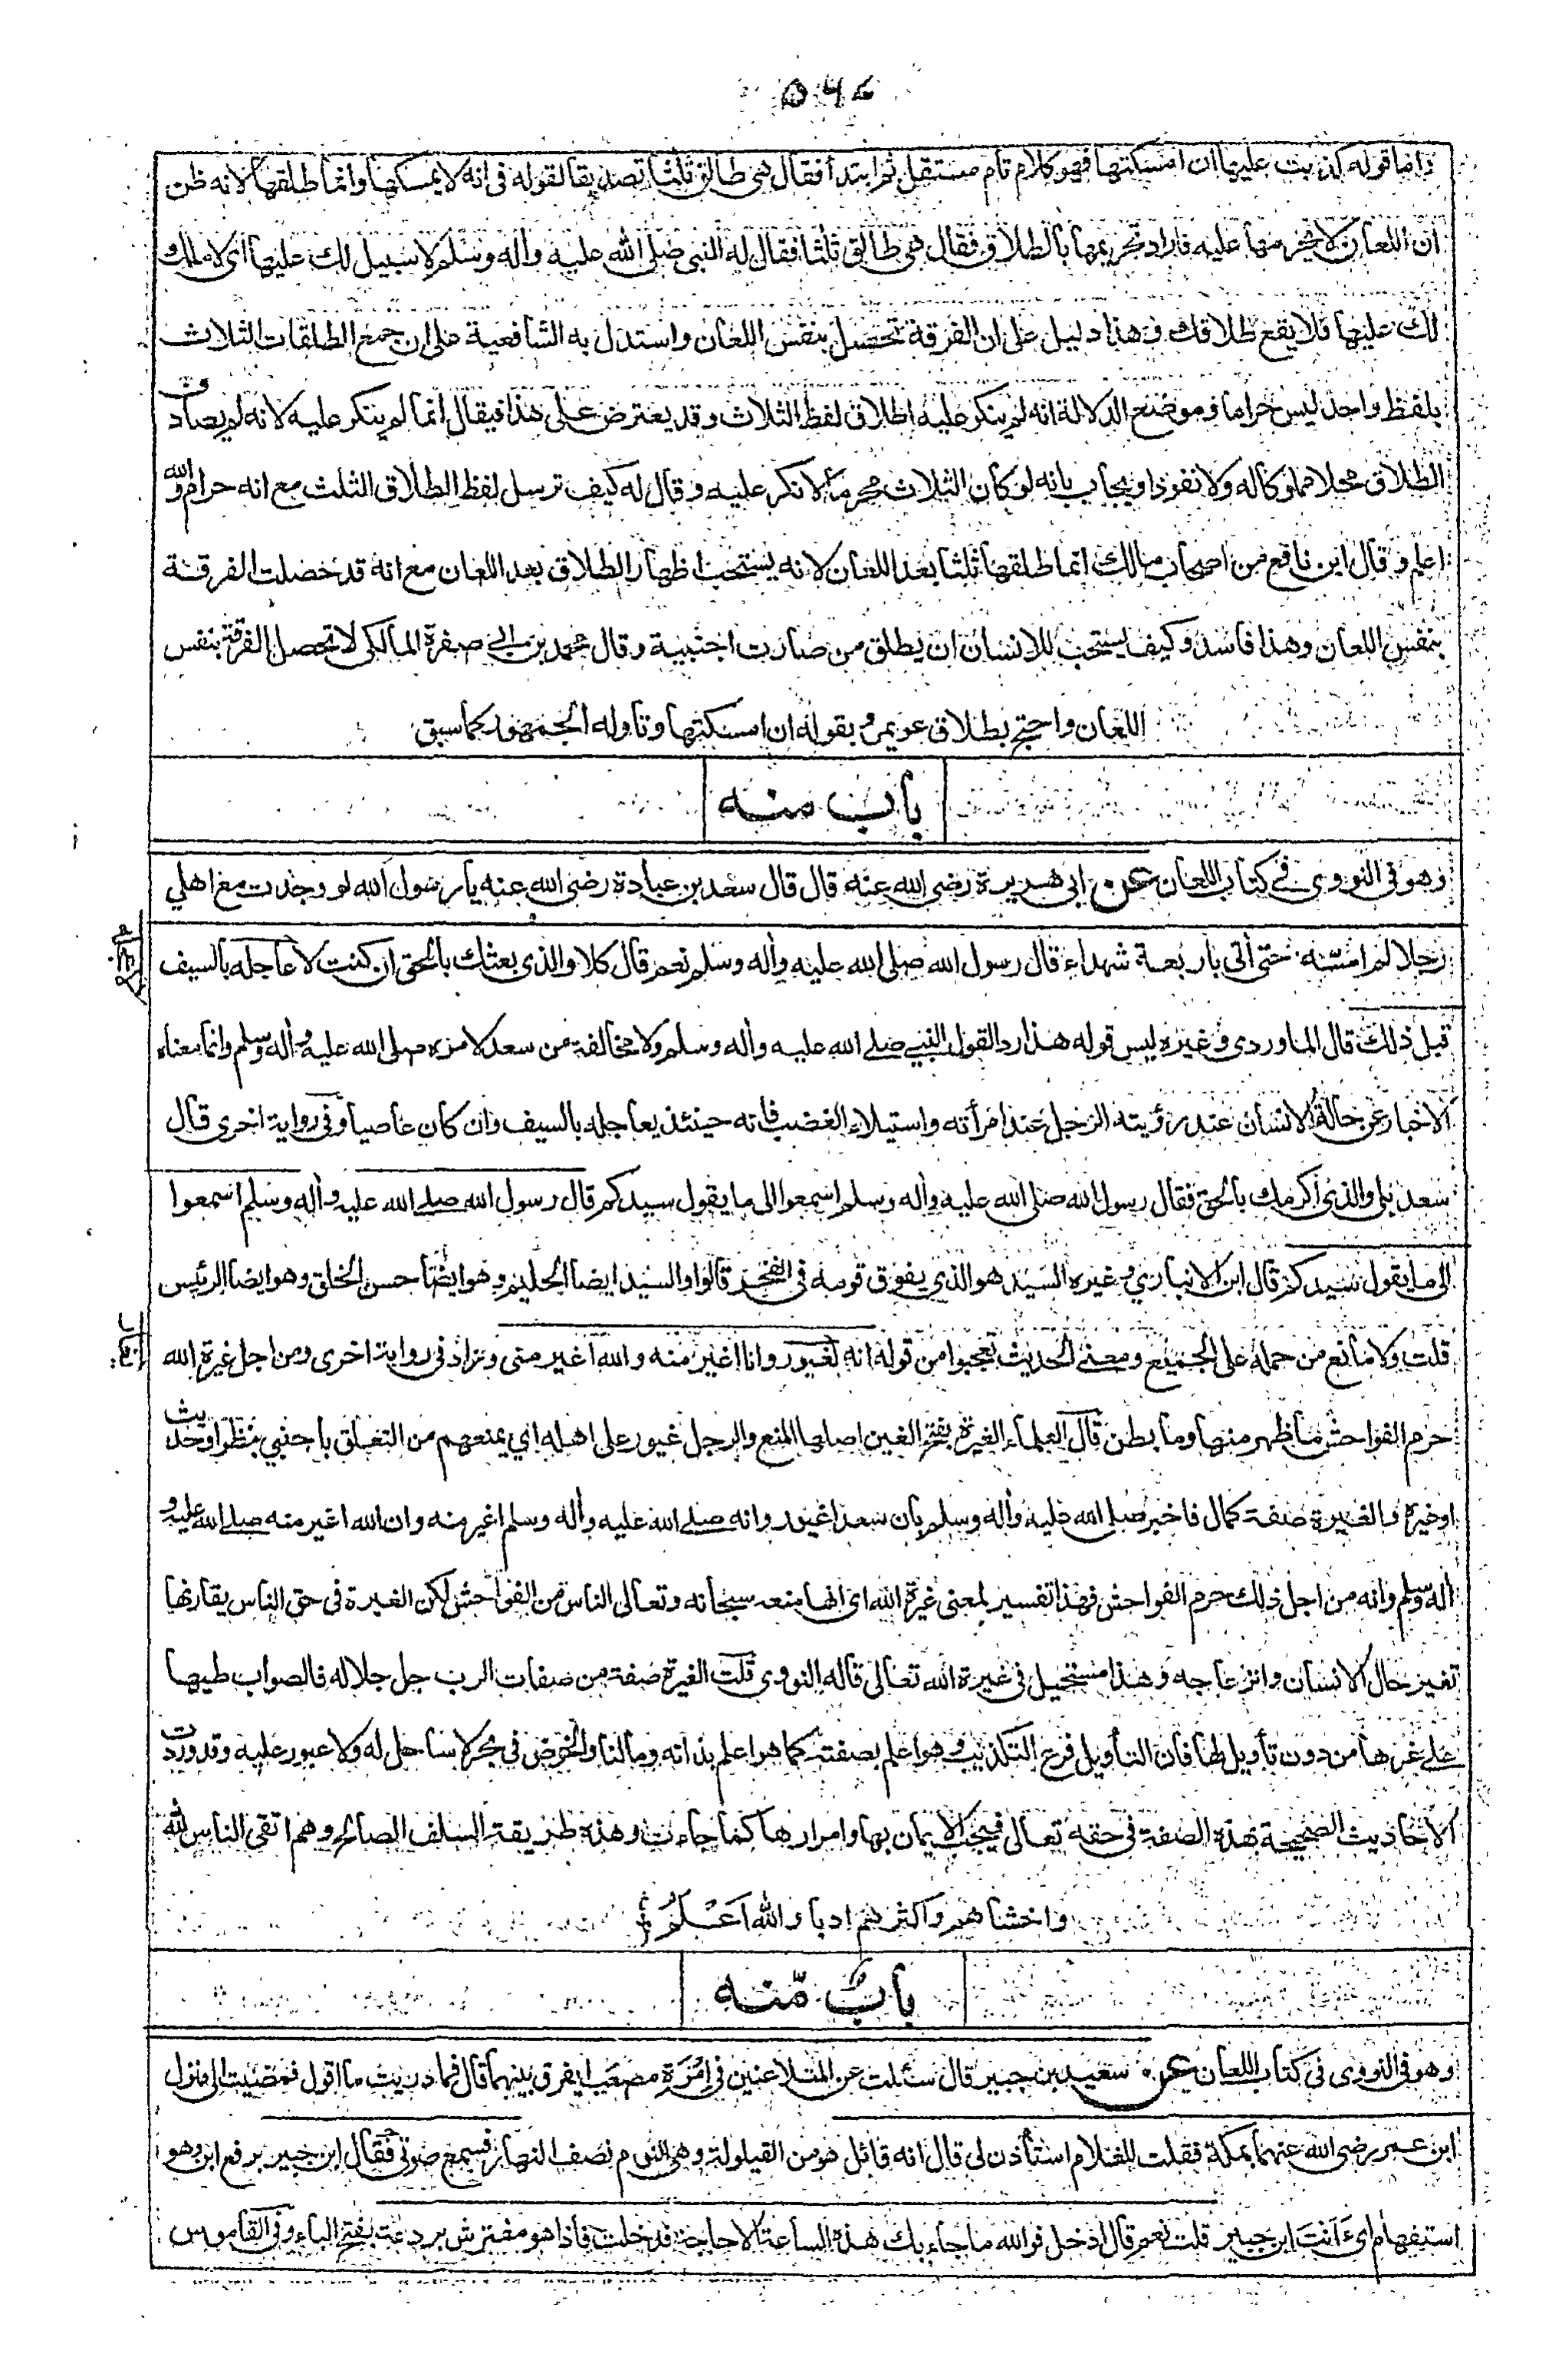 واما قوله كذبت عليها ان امسكتها فهو كلام تام مستقل ثم ابتدأ فقال هى طالق ثلثا تصديقا لقوله فى انه لا يمسكها وانما طلقها لانه ظن
ان اللعان لا يحرمها عليه فاراد تحريمها بالطلاق فقال هى طالق ثلثا فقال له النبى صلى الله عليه واله وسلم لا سبيل لك عليها اى لا ملك
لك عليها فلا يقع طلاقك و هذا دليل على ان الفرقة تحصل بنفس اللعان واستدل به الشافعية على ان جمع الطلقات الثلاث
بلفظ واحد ليس حراما وموضع الدلالة انه لم ينكر عليه اطلاق لفظ الثلاث وقد يعترض على هذا فيقال انما لم ينكر عليه لانه لم يصادف
الطلاق محلا مملوكا له ولا نفوذا ويجاب بانه لو كان الثلاث محرما لانكر عليه وقال له كيف ترسل لفظ الطلاق الثلث مع انه حرام والله
اعلم وقال ابن نافع من اصحاب مالك انما طلقها ثلثا بعد اللعان لانه يستحب اظهار الطلاق بعد اللعان مع انه قد حصلت الفرقة
بنفس اللعان وهذا فاسد وكيف يستحب للانسان ان يطلق من صارت اجنبية وقال محمد بن ابي صفرة المالكى لا تحصل الفرقة بنفس
اللعان واحتج بطلاق عويمر و بقوله ان امسكتها وتاوله الجمهور كما سبق
باب منه
وهو فى النووى في كتاب اللعان عن ابى هريرة رضى الله عنه قال قال سعد بن عبادة رضى الله عنه يا رسول الله لو وجدت مع اهلي
رجلا لم امسه حتى أتى باربعة شهداء قال رسول الله صلى الله عليه واله وسلم نعم قال كلا والذى بعثك بالحق ان كنت لاعاجله بالسيف
قبل ذلك قال الماوردى وغيره ليس قوله هذا رد القول النبي صلى الله عليه واله وسلم ولا مخالفة من سعد لامره صلى الله عليه واله وسلم وانما معناه
الاخبار عن حالة الانسان عند رؤيته الرجل عند امرأته واستيلاء الغضب فانه حينئذ يعاجله بالسيف وان كان عاصيا وفى رواية اخرى قال
سعد بلى والذى اكرمك بالحق فقال رسول الله صلى الله عليه واله وسلم اسمعوا الى ما يقول سيدكم قال رسول الله صلى الله عليه واله وسلم اسمعوا
الى ما يقول سيدكم قال ابن الانباري وغيره السيد هو الذي يفوق قومه فى الفخر قالوا والسيد ايضا الحليم وهو ايضا حسن الخلق وهو ايضا الرئيس
قلت ولا مانع من حمله على الجميع ومعنى الحديث تعجبوا من قوله انه لغيور وانا اغير منه والله اغير منى وزاد فى رواية اخرى ومن اجل غيرة الله
حرم الفواحش ما ظهر منها وما بطن قال العلماء الغيرة بفتح الغين اصلها المنع والرجل غيور على اهله اي يمنعهم من التعلق باجنبي بنظر او حديث
او غيره والغيرة صفة كمال فاخبر صلى الله عليه واله وسلم بان سعدا غيور وانه صلى الله عليه واله وسلم اغير منه وان الله اغير منه صلى الله عليه و
اله وسلم وانه من اجل ذلك حرم الفواحش فهذا تفسير لمعنى غيرة الله اى انها منعه سبحانه وتعالى الناس من الفواحش لكن الغيرة فى حق الناس يقارنها
تغير حال الانسان وانزعاجه وهذا مستحيل فى غيرة الله تعالى قاله النووى قلت الغيرة صفة من صفات الرب جل جلاله فالصواب طيها
على غرها من دون تأويل لها فان التأويل فرع التكذيب وهو اعلم بصفته كما هو اعلم بذاته وما لنا والخوض فى بحر لا ساحل له ولا عبور عليه وقد وردت
الاحاديث الصحيحة بهذه الصفة فى حقه تعالى فيجب الايمان بها وامرارها كما جاءت وهذه طريقة السلف الصالح وهم اتقى الناس لله
واخشاهم واكثرهم ادبا والله اعلم
باب منه
وهو فى النووى فى كتاب اللعان عن سعيد بن جبير قال سئلت عن المتلاعنين فى امرة مصعب ايفرق بينهما قال فما دريت ما اقول فمضيت الى منزل
ابن عمر رضى الله عنهما بمكة فقلت للغلام استأذن لى قال انه قائل هو من القيلولة وهى النوم نصف النهار فسمع صوتى فقال ابن جبير برفع ابن وهو
استفهام اى ءانت ابن جبير قلت نعم قال ادخل فوالله ما جاء بك هذه الساعة الا حاجة فدخلت فاذا هو مفترش بردعة بفتح الباء وفى القاموس